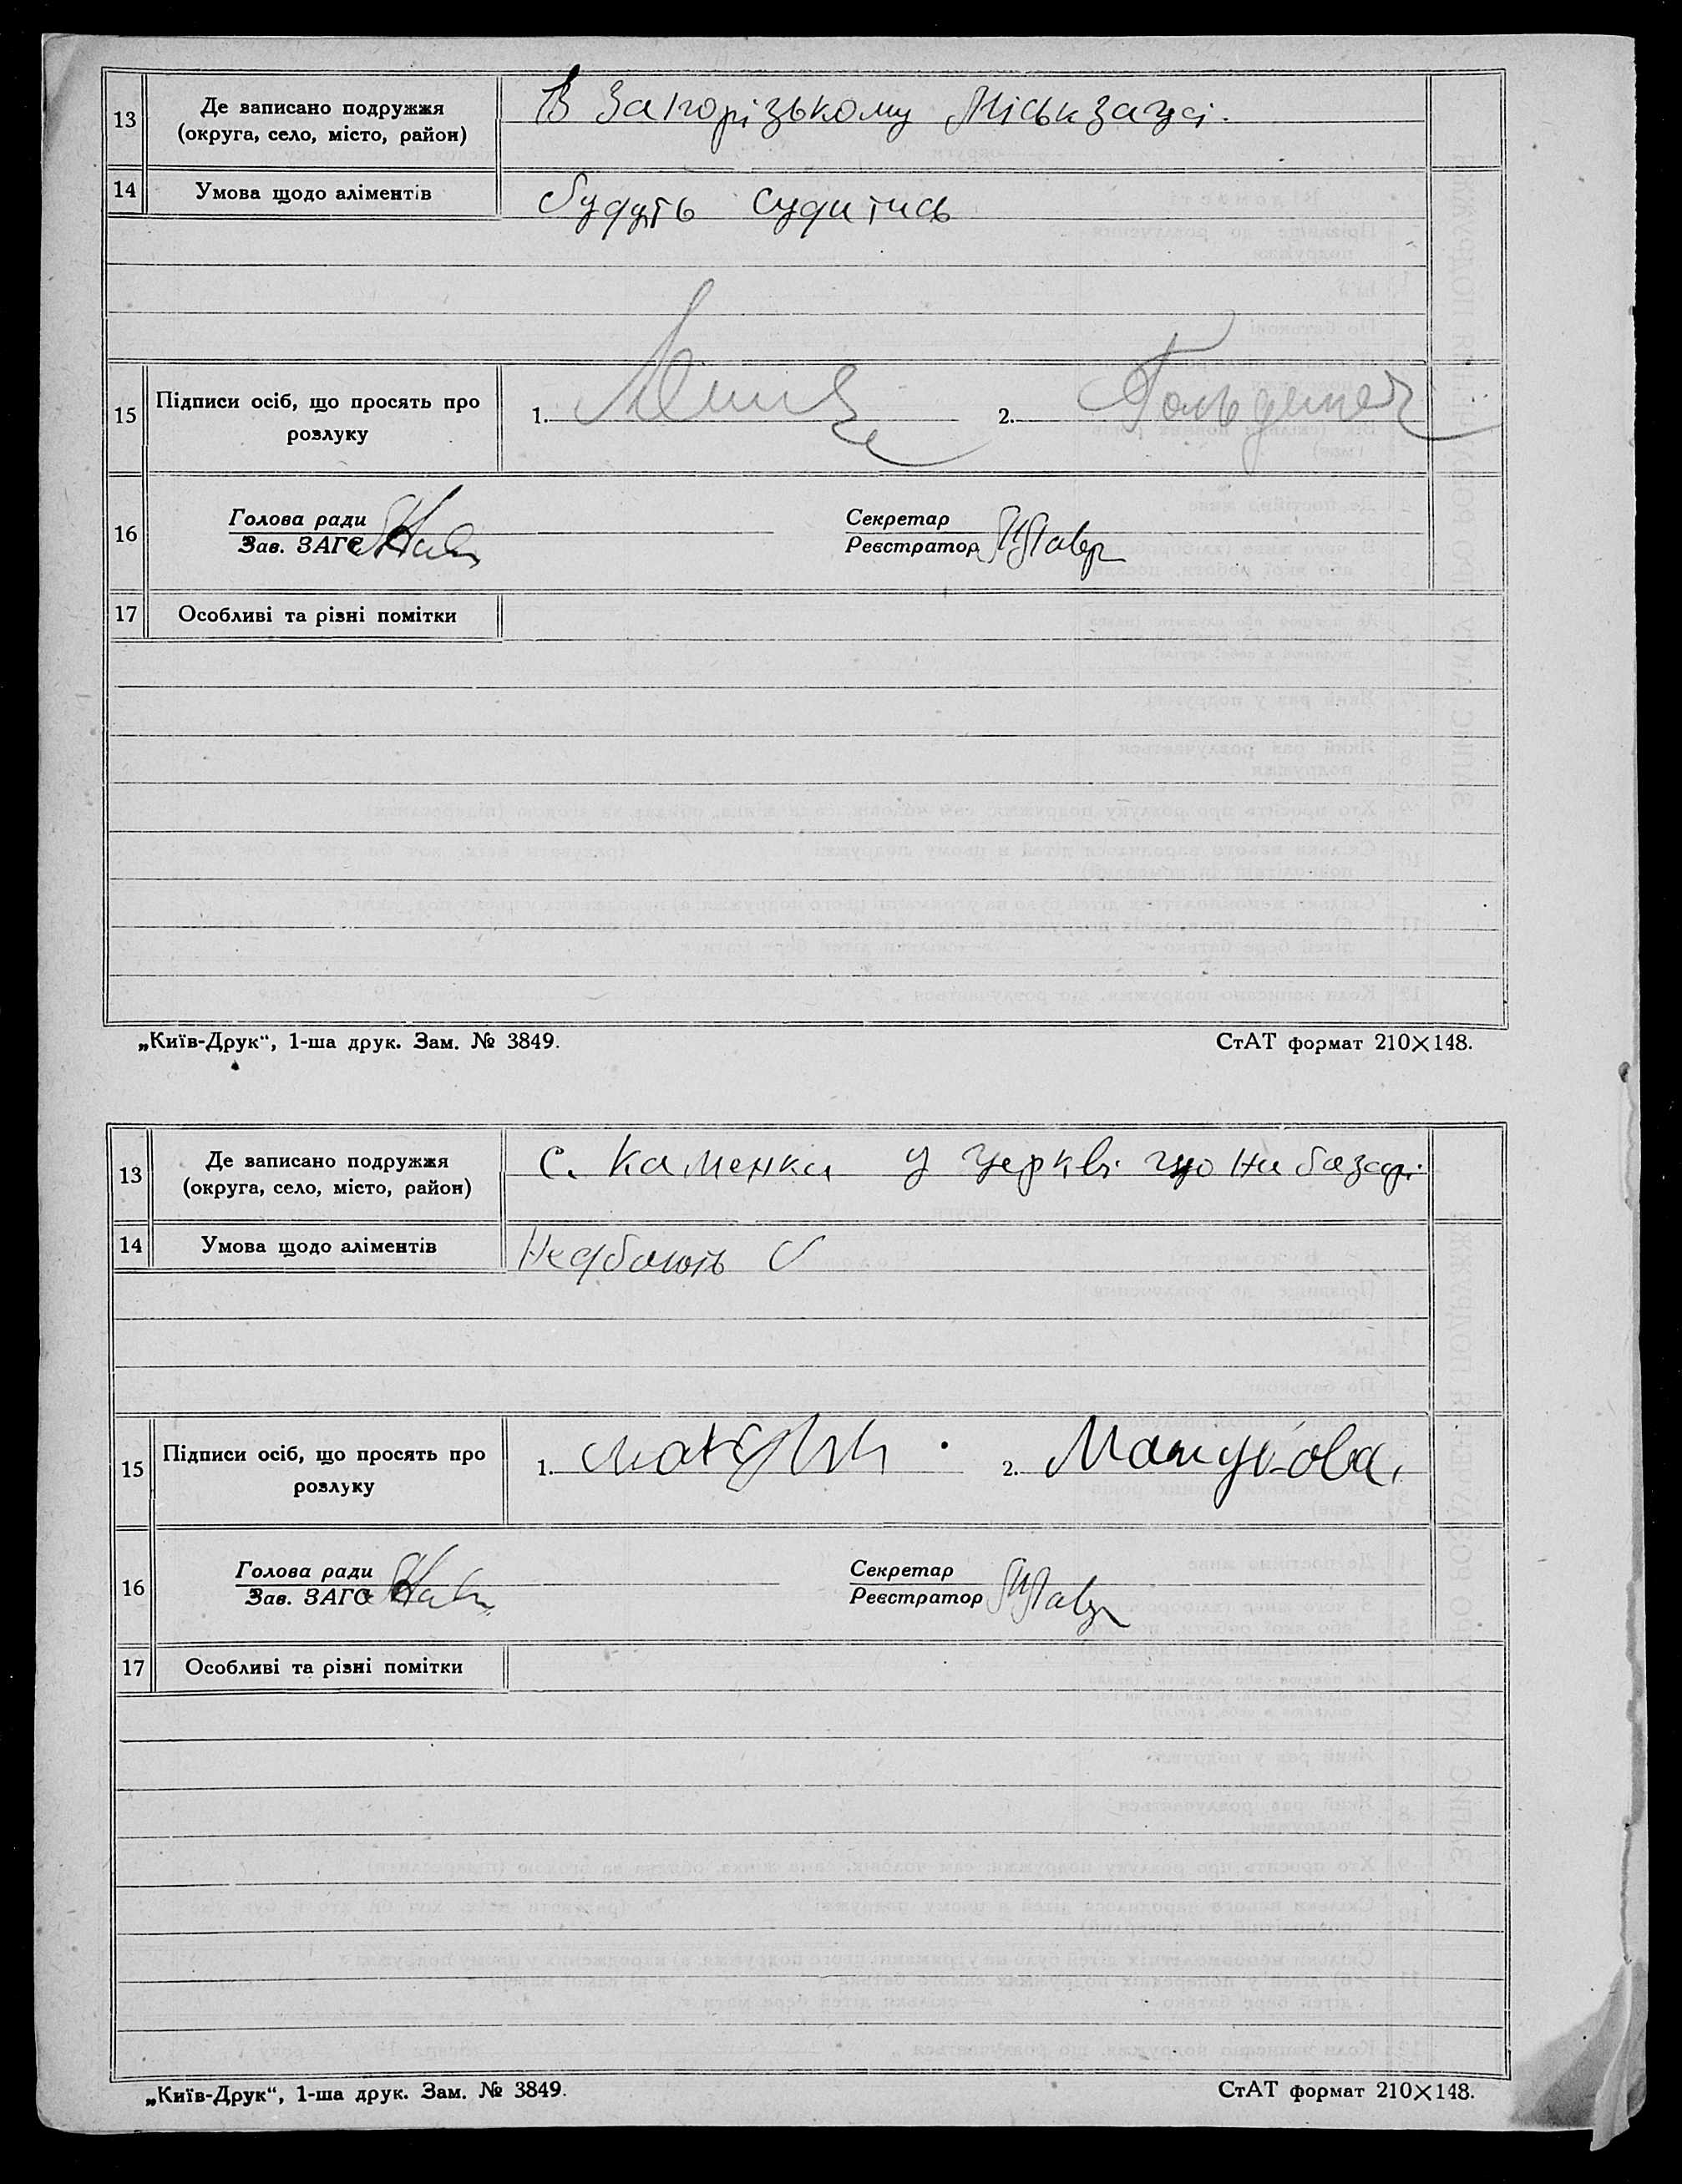 13
Де записано подружжя
(округа, село, місто, район)
В Запорізькому Міськзагсі.
14
Умова щодо аліментів
будуть судитись
15
Підписи осіб, що просять про
розлуку
1.
2.
16
Голова ради
Зав. ЗАГС
Секретар
Реєстратор
17
Особливі та різні помітки
„Київ-Друк“, 1-ша друк. Зам. № 3849.
СтАТ формат 210×148.
13
Де записано подружжя
(округа, село, місто, район)
с. Каменка у церкві що на базарі
14
Умова щодо аліментів
Недбають
15
Підписи осіб, що просять про
розлуку
1.
2.
16
Голова ради
Зав. ЗАГС
Секретар
Реєстратор
17
Особливі та різні помітки
„Київ-Друк“, 1-ша друк. Зам. № 3849.
СтАТ формат 210×148.